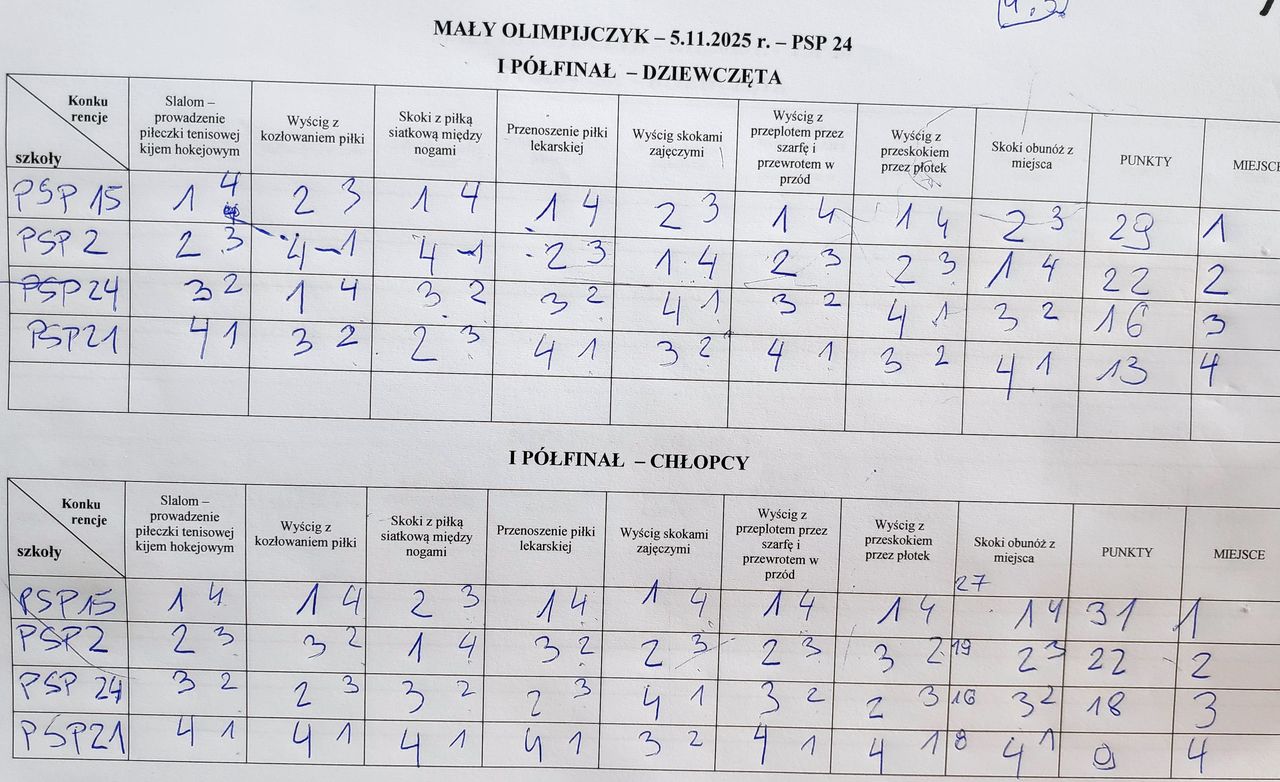 MAŁY OLIMPIJCZYK – 5.11.2025 r. – PSP 24
I PÓŁFINAŁ – DZIEWCZĘTA
Konku rencje szkoły | Slalom – prowadzenie piłeczki tenisowej kijem hokejowym | Wyścig z kozłowaniem piłki | Skoki z piłką siatkową między nogami | Przenoszenie piłki lekarskiej | Wyścig skokami zajęczymi | Wyścig z przeplotem przez szarfę i przewrotem w przód | Wyścig z przeskokiem przez płotek | Skoki obunóż z miejsca | PUNKTY | MIEJSCE
PSP 15 | 1 4 | 2 3 | 1 4 | 1 4 | 2 3 | 1 4 | 1 4 | 2 3 | 29 | 1
PSP 2 | 2 3 | 4 – 1 | 4 – 1 | 2 3 | 1 4 | 2 3 | 2 3 | 1 4 | 22 | 2
PSP 24 | 3 2 | 1 4 | 3 2 | 3 2 | 4 1 | 3 2 | 4 1 | 3 2 | 16 | 3
PSP 21 | 4 1 | 3 2 | 2 3 | 4 1 | 3 2 | 4 1 | 3 2 | 4 1 | 13 | 4
I PÓŁFINAŁ – CHŁOPCY
Konku rencje szkoły | Slalom – prowadzenie piłeczki tenisowej kijem hokejowym | Wyścig z kozłowaniem piłki | Skoki z piłką siatkową między nogami | Przenoszenie piłki lekarskiej | Wyścig skokami zajęczymi | Wyścig z przeplotem przez szarfę i przewrotem w przód | Wyścig z przeskokiem przez płotek | Skoki obunóż z miejsca | PUNKTY | MIEJSCE
PSP 15 | 1 4 | 1 4 | 2 3 | 1 4 | 1 4 | 1 4 | 1 4 | 27 1 4 | 31 | 1
PSP 2 | 2 3 | 3 2 | 1 4 | 3 2 | 2 3 | 2 3 | 3 2 | 19 2 3 | 22 | 2
PSP 24 | 3 2 | 2 3 | 3 2 | 2 3 | 4 1 | 3 2 | 2 3 | 16 3 2 | 18 | 3
PSP 21 | 4 1 | 4 1 | 4 1 | 4 1 | 3 2 | 4 1 | 4 1 | 8 4 1 | 9 | 4